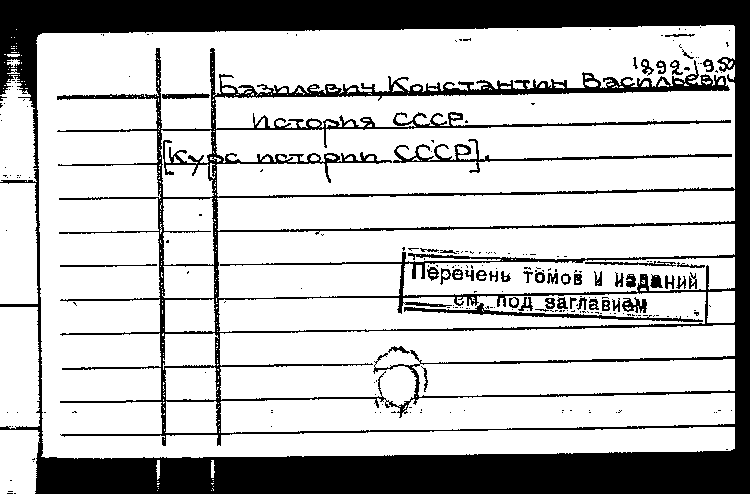 1892-1950
Базилевич, Константин Васильевич
История СССР.
[Курс истории СССР].
Перечень томов и изданий
см. под заглавием